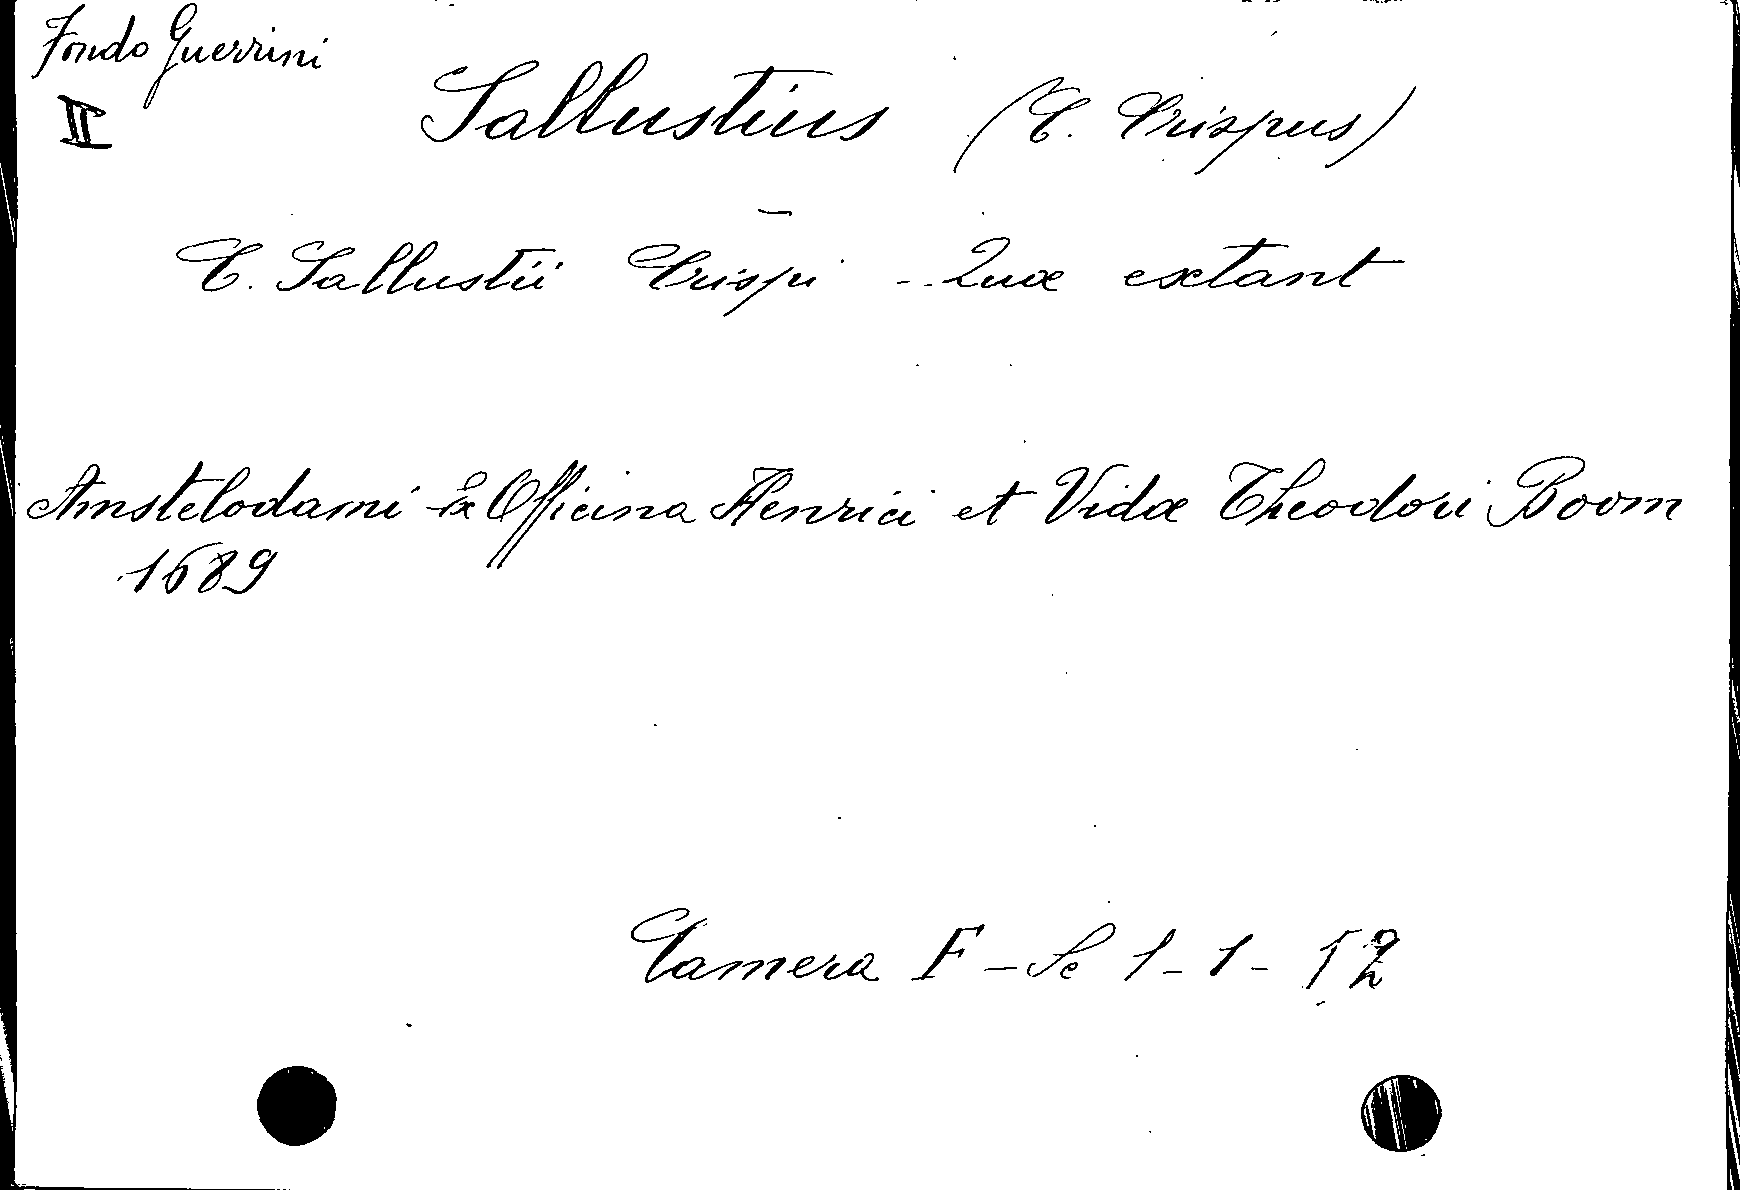 Fondo Guerrini
II
Sallustius (C. Crispus)
C. Sallustii Crispi - Quæ extant
Amstelodami Ex Officina Henrici et Vidæ Theodori Boom
1689
Camera F - Sc 1 - 1 - 12